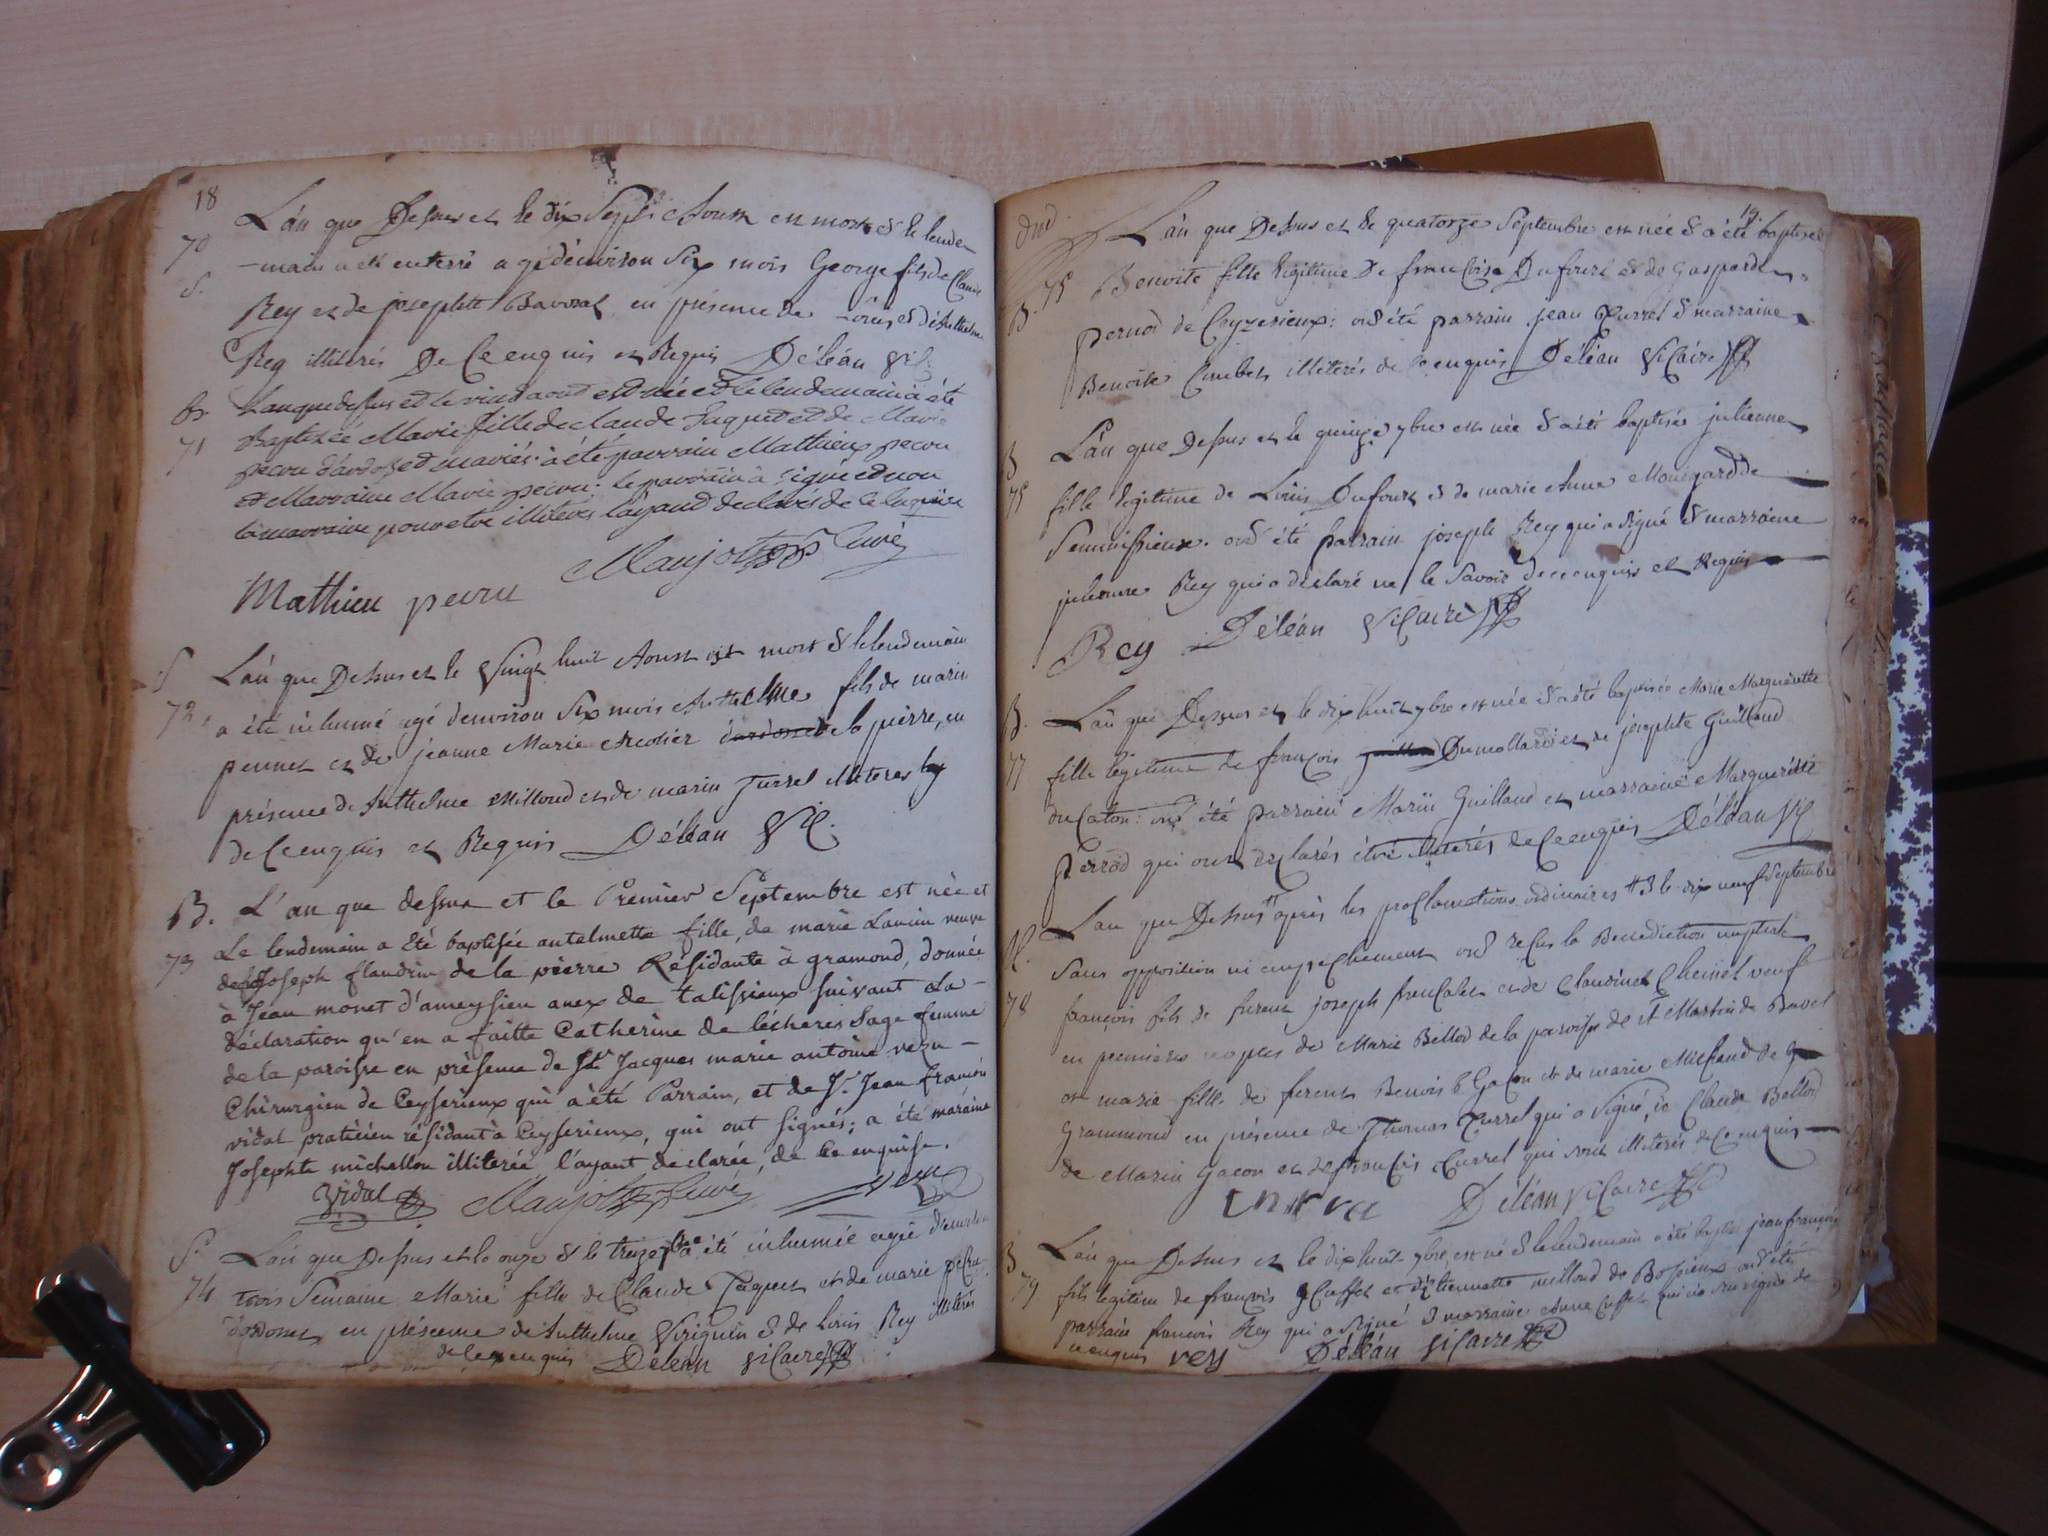 18
70
S.
L'an que Dessus et le dix Sept Aoust est mort & le lende-
-main a été enterré agé d'environ Six mois George fils de Claude
Rey et de josephte Bavoral en présence de Louis et d'Anthelme
Rey illiterés De Ce enquis et Requis Déléan Vic.
B.
71
L'an que dessus et le vint aout est née et le lendemain à été
Baptizée Marie fille de claude Jaquet et de Marie
pecru d'ardosset mariés. à été parrain Mathieu pecru
et Marraine Marie pecru; le parrain à signé et non
la marraine pour etre illiterée l'ayant declaré de ce enquise
Maujot Curé
Mathieu pecru
S
72
L'an que Dessus et le Vingt huit Aoust est mort & le lendemain
a été inhumé agé d'environ Six mois Anthelme fils de marin
peunet et de jeanne Marie de la pierre, en
présence de Anthelme Milloud et de marin Turrel illiterés
de Ce enquis et Requis Déléan Vic.
B.
73
L'an que dessus et le Premier Septembre est née et
Le lendemain a Eté baptisée antelmette fille, de marie Lancin veuve
de Joseph flaudrin de la pierre Résidante à gramond, donnée
à Jean monet d'ameysieu anex de talissieux suivant La-
déclaration qu'en a faitte Catherine de lécheres Sage femme
de la paroisse en présence de Sr Jacques marie antoine vezu-
Chirurgien de Ceyserieux qui à été Parrain, et de Sr. Jean François
vidal praticien résidant à Ceyserieux, qui ont signés; a été maraine
Josephte michallon illiterée l'ayant declarée, de ce enquise.
Vidal Maujot Curé vezu
S.
74
L'an que Dessus et le onze & le treize a été inhumée agée d'environ
trois Semaine Marie fille de Claude Jaquet et de marie pecru
d'ardosset en présence de Anthelme Viriguin & de Louis Rey illiterés
de Ce enquis Déléan Vicaire
19.
75
B.
L'an que Dessus et le quatorze Septembre est née & a été baptisée
Benoite fille légitime De françoise Dufour & de Gasparde
pernod de Ceyzerieux: ont été parrain jean Turrel & marraine
Benoite Combet illiterés de ce enquis Déléan Vicaire
B
75
L'an que Dessus et le quinze 7bre est née & a été baptisée julienne
fille légitime de Louis Dufour & de marie Anne Monigard de
Semmissieux. ont été parrain joseph Rey qui a signé & marraine
julienne Rey qui a déclaré ne le Savoir de ce enquis et Requis
Rey Déléan Vicaire
B.
77
L'an que Dessus et le dix huit 7bre est née & a été baptisée Marie Marguéritte
fille légitime de françois Dumollard et de josephte Guilland
du Caton: ont été parrain Marin Guilland et marraine Marguéritte
perrod qui ont déclarés étre illiterés de Ce enquis Déléan Vic
M.
78
L'an que Dessus après les proclamations ordinaires & le dix neuf Septembre
Sans opposition ni empechement ont reçus la Benediction nuptiale
françois fils de furent joseph françalet et de Claudine Chemel veuf
en premieres nopces de Marie Bellod de la paroisse de St Martin de Bavel
et marie fille de furent Benoit Gacon et de marie Michaud de
Grammond en présence de Thomas Turrel qui a signé, de Claude Bellod
de Marin Gacon et de françois Turrel qui sont illiterés de Ce enquis
Déléan Vicaire
B
79
L'an que Dessus et le dix huit 7bre, est né & le lendemain a été baptisé jean françois
fils légitime de françois Cuffet et d'Etiennette milloud de Bossieux ont été
parrain françois Rey qui a signé & marraine Anne Cuffet qui n'a su signé de
ce enquis rey Déléan Vicaire